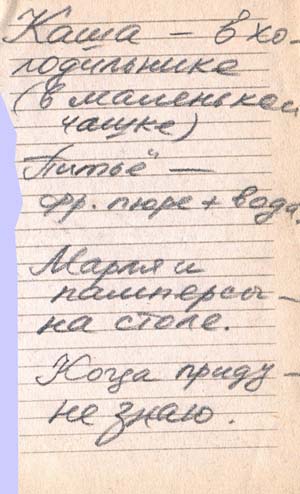 Каша – в хо-
лодильнике
(в маленькой
чашке)
"Питьё" —
фр. пюре + вода.
Марля и
памперсы –
на столе.
Когда приду –
не знаю.